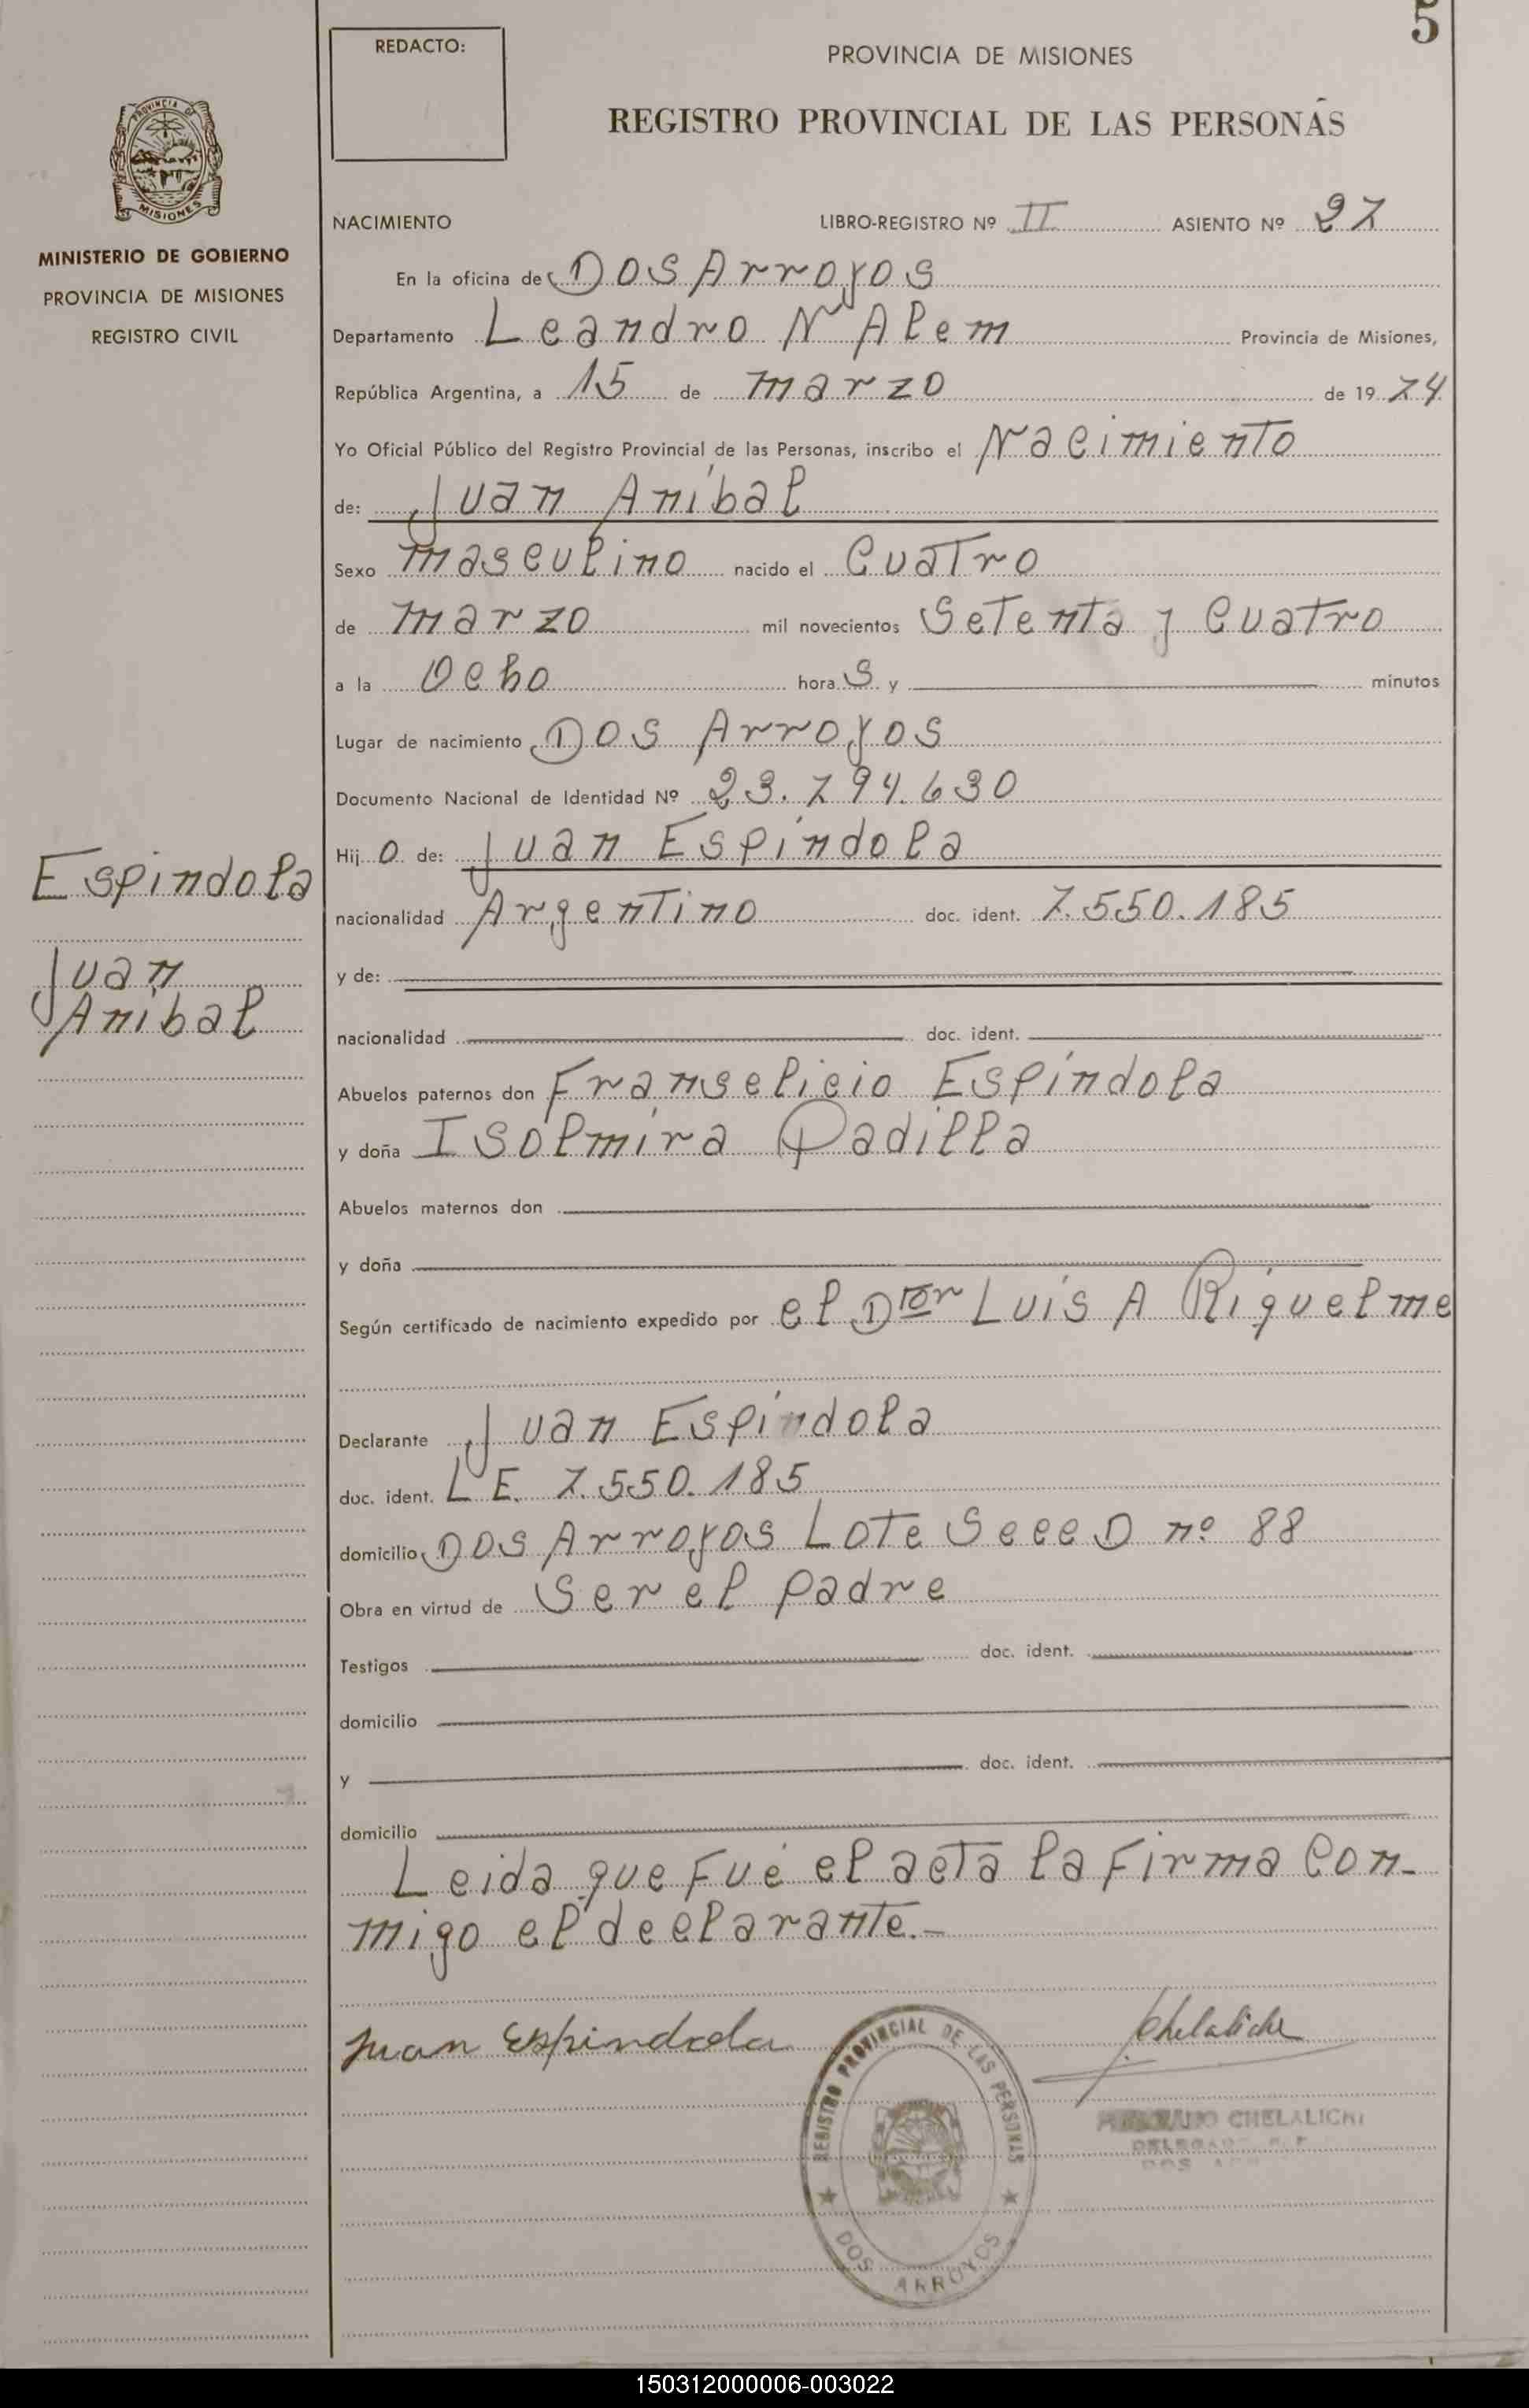 5
REDACTO:
PROVINCIA DE MISIONES
REGISTRO PROVINCIAL DE LAS PERSONAS
PROVINCIA DE MISIONES
MINISTERIO DE GOBIERNO
PROVINCIA DE MISIONES
REGISTRO CIVIL
NACIMIENTO LIBRO-REGISTRO Nº II ASIENTO Nº 27
En la oficina de Dos Arroyos
Departamento Leandro N Alem Provincia de Misiones,
República Argentina, a 15 de marzo de 1974
Yo Oficial Público del Registro Provincial de las Personas, inscribo el Nacimiento
de: Juan Aníbal
Sexo masculino nacido el Cuatro
de marzo mil novecientos Setenta y Cuatro
a la Ocho horas y minutos
Lugar de nacimiento Dos Arroyos
Documento Nacional de Identidad Nº 23.794.630
Hijo de: Juan Espíndola
nacionalidad Argentino doc. ident. 7.550.185
Espindola
Juan
Anibal
y de:
nacionalidad doc. ident.
Abuelos paternos don Franselicio Espíndola
y doña Isolmira Padilla
Abuelos maternos don
y doña
Según certificado de nacimiento expedido por el Dtor Luís A Riquelme
Declarante Juan Espíndola
doc. ident. L E. 7.550.185
domicilio Dos Arroyos Lote Secc D nº 88
Obra en virtud de Ser el padre
Testigos doc. ident.
domicilio
y doc. ident.
domicilio
Leida que Fué el acta la Firma Con-
migo el declarante.-
Juan Espindola
Chelaliche
REGISTRO PROVINCIAL DE LAS PERSONAS
DOS ARROYOS
CHELALICHE
150312000006-003022